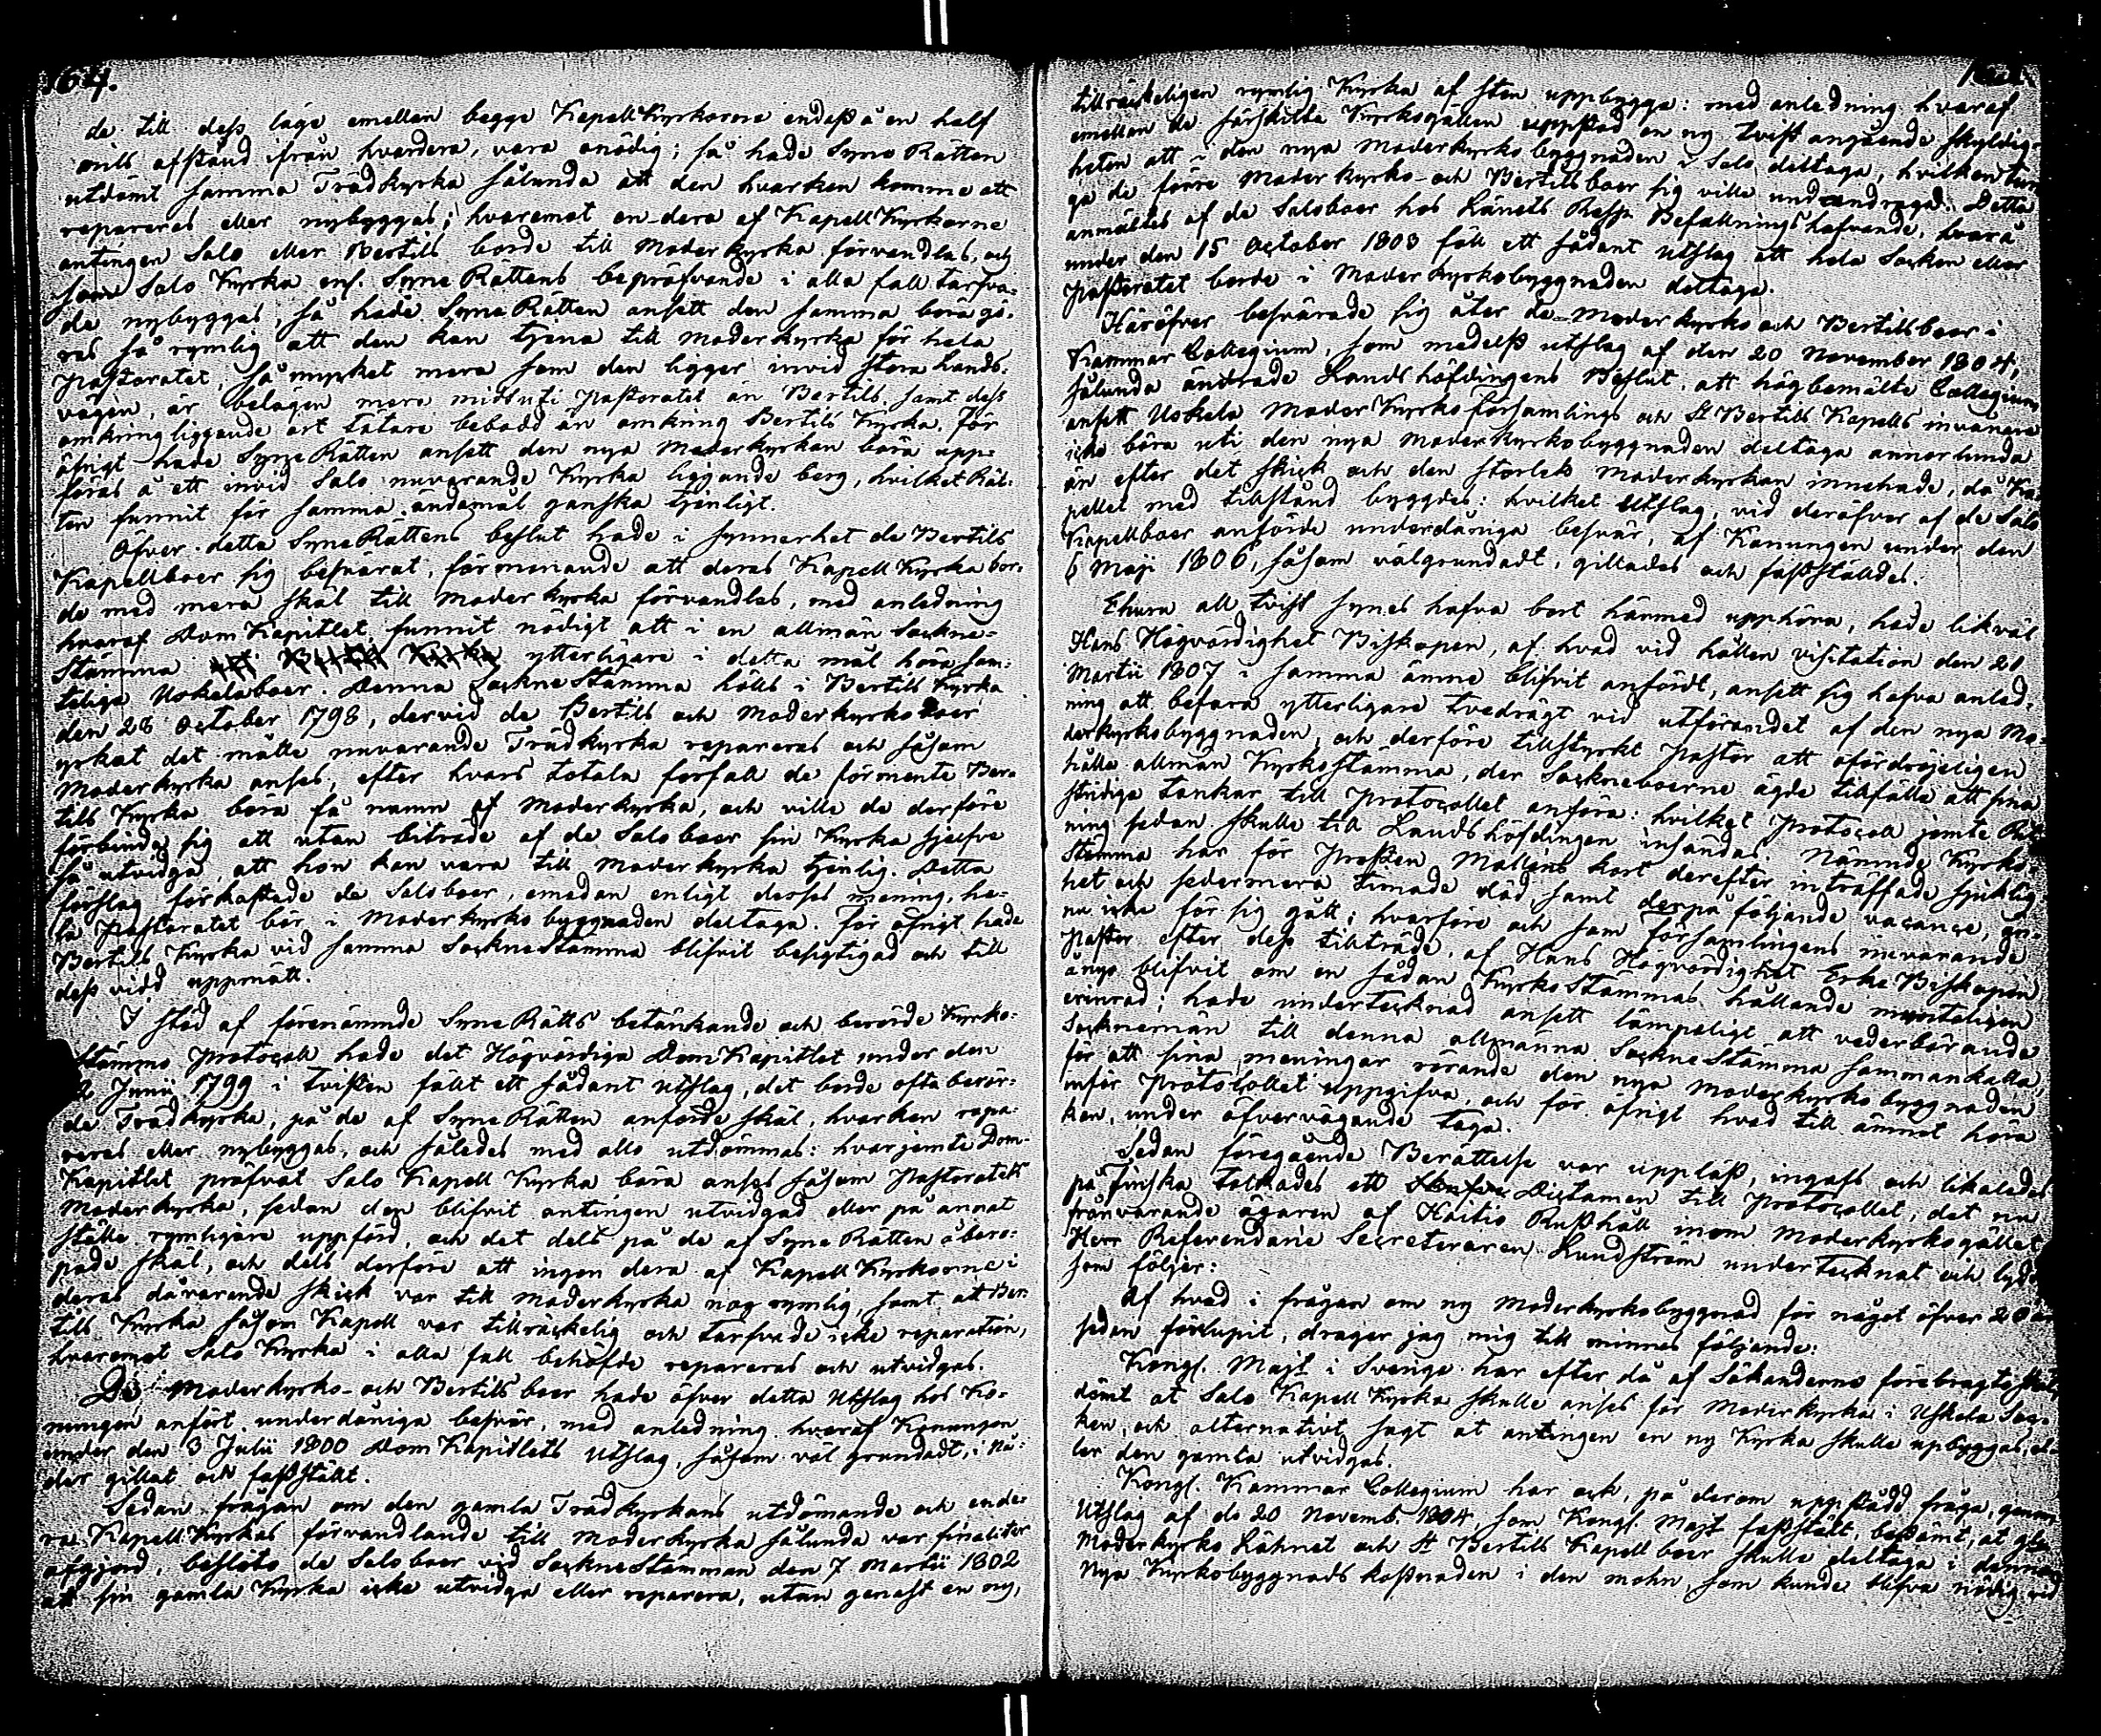 164.
de till dess läge emellan begge KapellKyrkorna endast å en half
mils afstånd ifrån hvardera, vara onödig; så hade Syne Rätten
utdömt samma Trädkyrka sålunda att den hvarken komme att
repareras eller nybyggas; hvaremot en dera af KapellKyrkorne
antingen Salo eller Bertils borde till Moderkyrka förvandlas, och
som Salo Kyrka enl. Syne Rättens bepröfvande i alla fall tarfva-
de nybyggas, så hade Syne Rätten ansett den samma böra gö-
ras så rymlig att den kan tjena till Moderkyrka för hela
Pastoratet, så mycket mera som den ligger invid stora Lands-
vägen, är belägen mera midt uti Pastoratet än Bertils, samt dess
omkringliggande ort tätare bebodd än omkring Bertils Kyrka. För
öfrigt hade Syne Rätten ansett den nya Moderkyrkan böra upp-
föras å ett invid Salo nuvarande Kyrka liggande berg, hvilket Rät-
ten funnit för samma ändamål ganska tjenligt.
Öfver detta SyneRättens beslut hade i synnerhet de Bertils
Kapellboer sig besvärat, förmenande att deras Kapell Kyrka bor-
de med mera skäl till Moderkyrka förvandlas, med anledning
hvaraf DomKapitlet funnit nödigt att i en allmän Sockne-
Stämma ytterligare i detta mål höra sam-
telige Uskelaboer. Denna SockneStämma hölls i Bertils Kyrka
den 28 October 1798, dervid de Bertils och Moderkyrkoboer
yrkat det måtte nuvarande Trädkyrka repareras och såsom
Moderkyrka anses, efter hvars totala förfall de förmente Ber-
tils Kyrka bora få namn af Moderkyrka, och ville de derföre
förbinda sig att utan biträde af de Salo boer sin Kyrka sjelfve
så utvidga, att hon kan vara till Moderkyrka tjenlig. Detta
förslag förkastade de Saloboer, emedan enligt derses mening, he-
la Pastoratet bör i Moderkyrko byggnaden deltaga. För öfrigt hade
Bertils Kyrka vid samma SockneStämma blifvit besigtigad och till
dess vidd uppmätt.
I stöd af förenämnde Syne Rätts betänkande och berörde Kyrko-
Stämmo Protocoll hade det Högvördiga DomKapitlet under den
2 Junii 1799 i tvisten fällt ett sådant utslag, det borde ofta berör-
de Trädkyrka, på de af Syne Rätten anförde skäl, hvarken repa-
reras eller nybyggas, och således med allo utdömmas: hvarjemte Dom-
Kapitlet pröfvat Salo Kapell Kyrka böra anses såsom Pastoratets
Moderkyrka, sedan den blifvit antingen utvidgad eller på annat
ställe rymligare uppförd, och det dels på de af Syne Rätten åbero-
pade skäl, och dels derföre att ingen dera af KapellKyrkorne i
deras dåvarande skick var till Moderkyrka nog rymlig, samt att Ber-
tills Kyrka såsom Kapell var tillräckelig och tarfvade icke reparation,
hvaremot Salo Kyrka i alla fall behöfde repareras och utvidgas.
De Moderkyrko- och Bertils boer hade öfver detta Utslag hos Ko-
nungen anfört underdåniga besvär, med anledning hvaraf Konungen
under den 3 Julii 1800 DomKapitlets Utslag, såsom väl grundadt, i nå-
der gillat och fastställt.
Sedan frågan om den gamla Trädkyrkans utdömande och ende-
ra KapellKyrkas förvandlande till Moderkyrka sålunda var finaliter
afgjord, beslöto de Salo boer vid SockneStämman den 7 Martii 1802
att sin gamla Kyrka icke utvidga eller reparera, utan genast en ny,
tillräckeligen rymlig Kyrka af sten uppbygga: med anledning hvaraf
emellan de särskilta Kyrkogällen uppstod en ny tvist angående skyldig-
heten att i den nya Moderkyrko byggnaden i Salo deltaga, hvilken tun-
ga de förre Moderkyrko- och Bertilsboer sig ville undandraga. Detta
anmältes af de Saloboer hos Länets Resp. Befallningshafvande, hvarå
under den 15 October 1803 föll ett sådant utslag att hela Socken eller
Pastoratet borde i Moderkyrkobyggnaden deltaga.
Häröfver besvärade sig åter de Moderkyrko och Bertilsboer i
Kammar Collegium, som medelst utslag af den 20 November 1804,
sålunda ändrade Landshöfdingens Beslut, att högbemälte Collegium
ansett Uskela ModerKyrkoförsamlings och St Bertils Kapells invånare
icke böra uti den nya Moderkyrkobyggnaden deltaga annorlunda
än efter det skick och den storlek Moderkyrkan innehade, då Ka-
pellet med tillstånd byggdes: hvilket Utslag, vid deröfver af de Salo
Kapellboer anförde underdåniga besvär, af Konungen under den
6 Maji 1806, såsom välgrundadt, gillades och fastställdes.
Ehuru all tvist synes hafva bort härmed upphöra, hade likväl
Hans Högvördighet Biskopen, af hvad vid hållen visitation den 21
Martii 1807 i samma ämne blifvit anfördt, ansett sig hafva anled-
ning att befara ytterligare tvedrägt vid utförandet af den nya Mo-
derkyrkobyggnaden, och derföre tillstyrkt Pastor att ofördröjeligen
hålla allmän Kyrkostämma, der Sockneboerne ägde tillfälle att sina
stridiga tankar till Protocollet anföra: hvilket Protocoll jemte
ning sedan skulle till Landshöfdingen insändas. Nämnde Kyrko-
Stämma har för Prosten Mollens kort derefter inträffade sjuklig-
het och sedermera timade död, samt derpå följande vacance, än-
nu icke för sig gått; hvarföre och som församlingens nuvarande
Pastor efter dess tillträde, af Hans Högvördighet Erke Biskopen
ånyo blifvit om en sådan KyrkoStämmas hållande munteligen
erinrad; hade undertecknad ansett lämpeligt att vederbörande
Socknemän till denna allmänna SockneStämma sammankalla,
för att sina meningar rörande den nya Moderkyrko byggnaden
inför Protocollet uppgifva, och för öfrigt hvad till ämnet höra
kan, under öfvervägande taga.
Sedan föregående Berättelse var uppläst, ingafs och likaledes
på Finska tolkades ett Dictamen till Protocollet, det nu
frånvarande ägaren af Kaitio Rusthåll inom Moderkyrkogället
Herr Referendarie Secreteraren Lundstrom undertecknat och lyder
som följer:
Af hvad i frågan om ny Moderkyrkobyggnad för något öfver 20 år
sedan förelupit, drager jag mig till minnes följande:
Kongl. Majt i Sverige har efter då af Sökanderne förebragte skäl,
dömt at Salo Kapell Kyrka skulle anses för Moderkyrka i Uskela Soc-
ken, och alternativt sagt at antingen en ny Kyrka skulle upbyggas, el-
ler den gamla utvidgas.
Kongl. Kammar Collegium har ock, på derom uppstådd fråga, genom
Utslag af d. 20 Novemb. 1804 som Kongl. Majt fastställt, bestämt, at
Moderkyrko Lähnet och St Bertils Kapell boer skulle deltaga i denna
Nya Kyrkobyggnads kostnaden i den mohn, som kunde blifva nödig vid